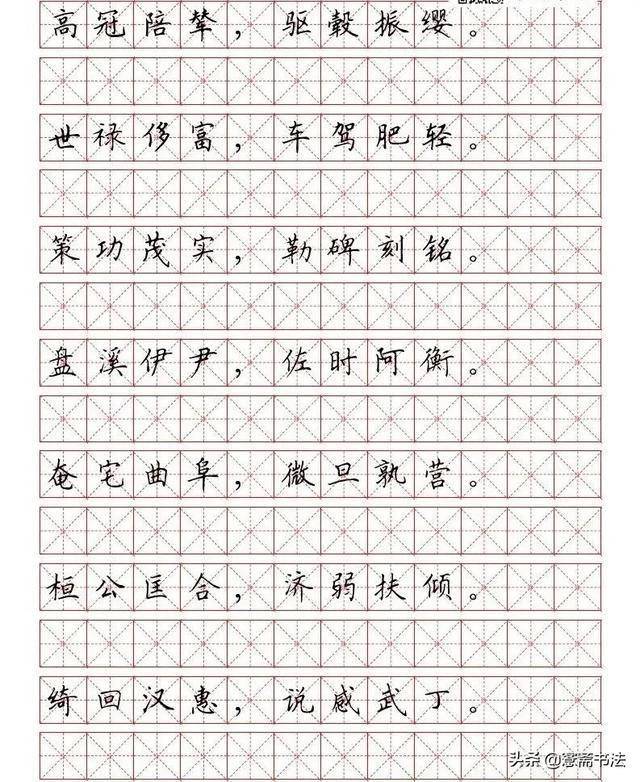 高冠陪辇，驱毂振缨。
世禄侈富，车驾肥轻。
策功茂实，勒碑刻铭。
盘溪伊尹，佐时阿衡。
奄宅曲阜，微旦孰营。
桓公匡合，济弱扶倾。
绮回汉惠，说感武丁。
头条@憲斋书法